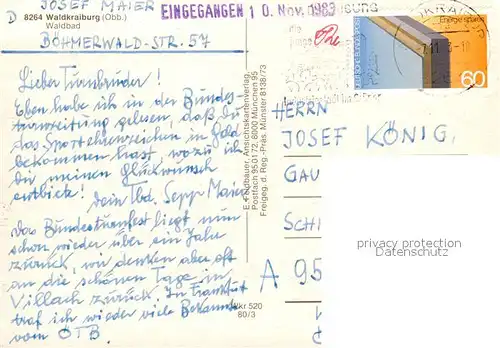 D JOSEF MAIER
8264 Waldkraiburg (Obb.)
Waldbad
BÖHMERWALD-STR. 57
EINGEGANGEN 10. Nov. 1983
Energie sparen
60
DEUTSCHE BUNDESPOST
Lieber Turnbruder!
Eben habe ich in der Bundes-
turnzeitung gelesen, daß Du
das Sportehrenzeichen in Gold
bekommen hast, wozu ich
dir meinen Glückwunsch
entbiete!
Dein Tbd. Sepp Maier
Das Bundesturnfest liegt nun
schon wieder über ein Jahr
zurück, wir denken aber oft
an die schönen Tage in
Villach zurück. In Frankfurt
traf ich wieder viele Bekannte
vom ÖTB.
E. + Feldbauer, Ansichtskartenverlag,
Postfach 950172, 8000 München 95
Freigeg. d. Reg.-Präs. Münster 8138/73
Wkr 520
80/3
HERRN
JOSEF KÖNIG,
GAU
SCHI
A 95
privacy protection
Datenschutz